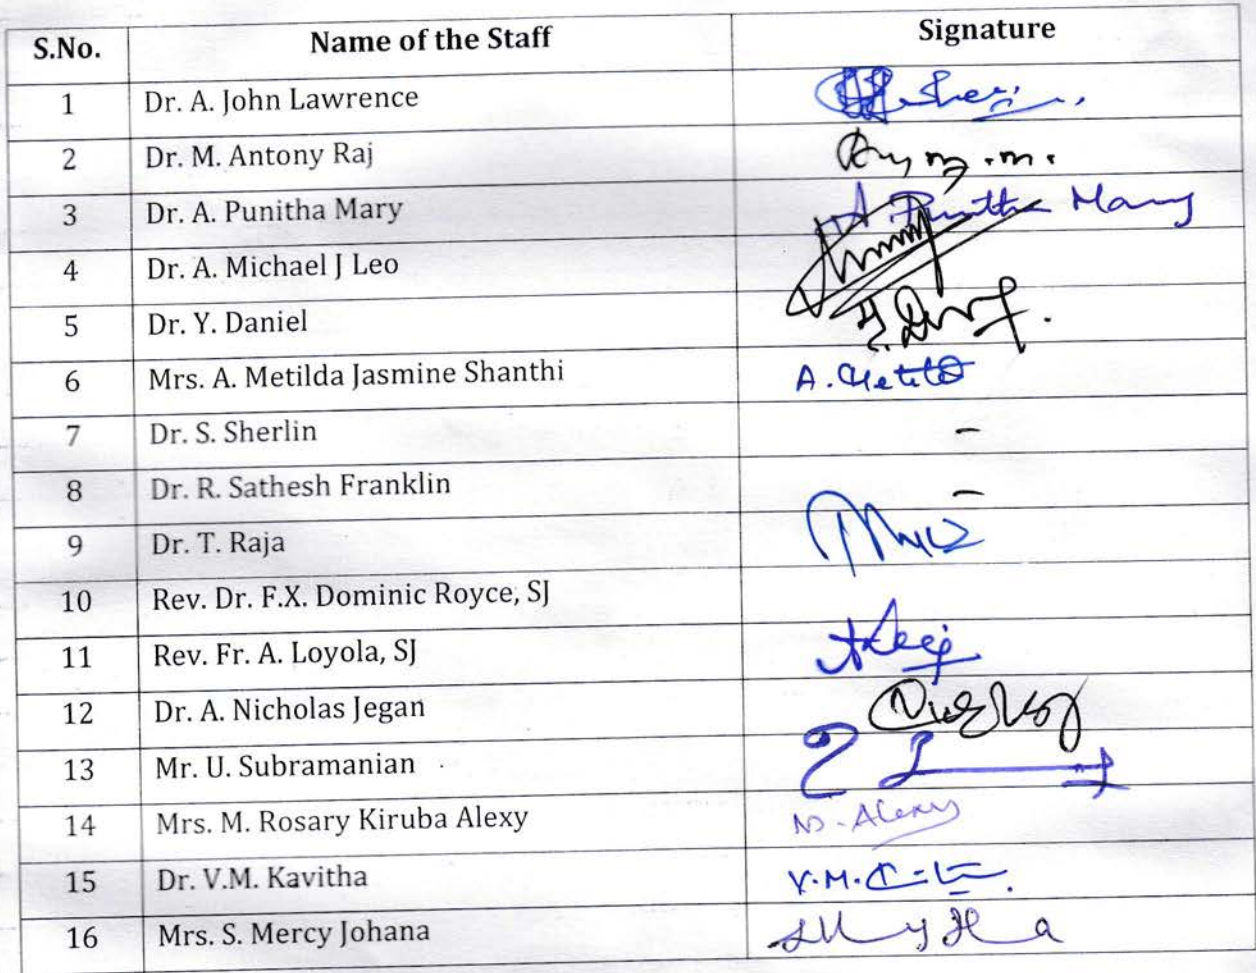 S.No. Name of the Staff Signature
1 Dr. A. John Lawrence
2 Dr. M. Antony Raj
3 Dr. A. Punitha Mary A. Punitha Mary
4 Dr. A. Michael J Leo
5 Dr. Y. Daniel
6 Mrs. A. Metilda Jasmine Shanthi A. Metilda
7 Dr. S. Sherlin -
8 Dr. R. Sathesh Franklin -
9 Dr. T. Raja
10 Rev. Dr. F.X. Dominic Royce, SJ
11 Rev. Fr. A. Loyola, SJ
12 Dr. A. Nicholas Jegan
13 Mr. U. Subramanian
14 Mrs. M. Rosary Kiruba Alexy Alexy
15 Dr. V.M. Kavitha V.M.
16 Mrs. S. Mercy Johana